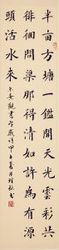 半畝方塘一鑑開天光雲影共
徘徊問渠那得清如許為有源
頭活水來
觀書有感